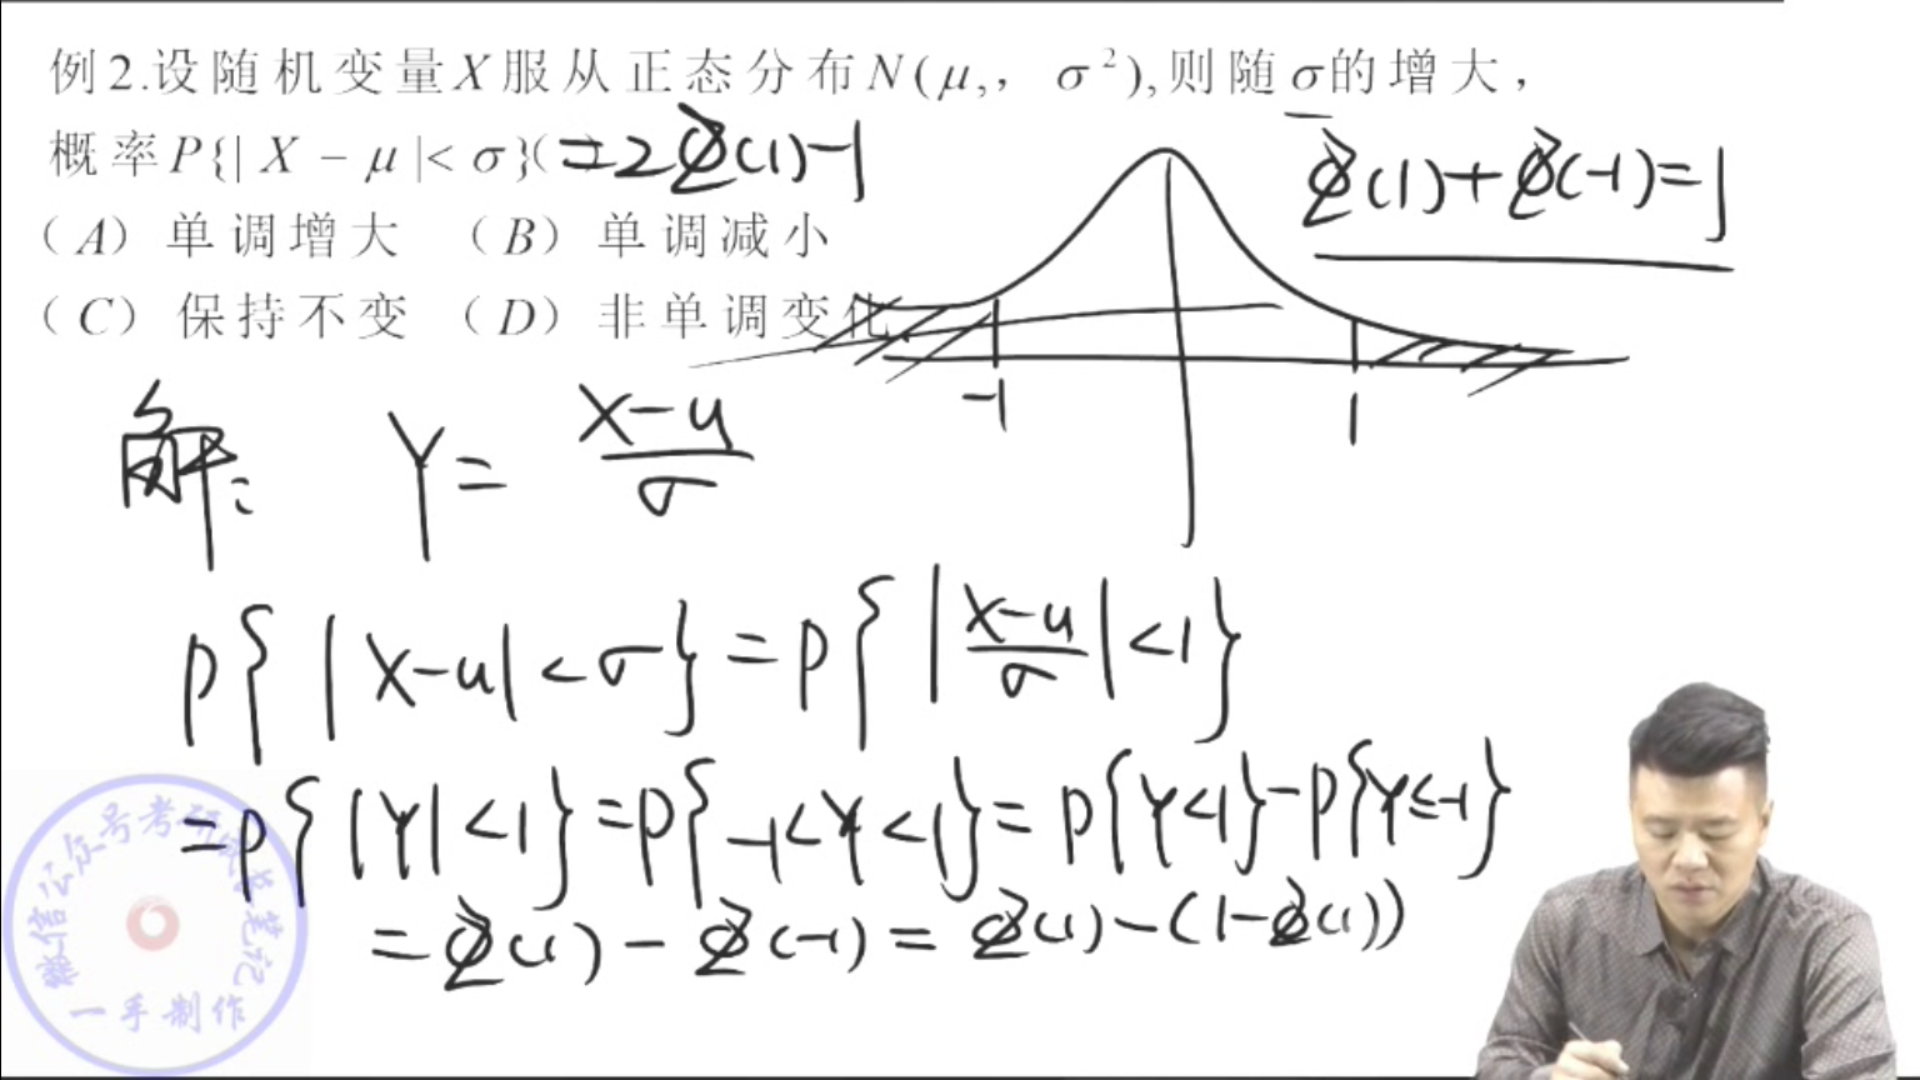 例2.设随机变量X服从正态分布N(μ,, σ²),则随σ的增大,
概率P{|X-μ|<σ}( =2Φ(1)-1
Φ(1)+Φ(-1)=1
(A) 单调增大 (B) 单调减小
(C) 保持不变 (D) 非单调变化
-1 1
解: Y= (X-u)/σ
P{|X-u|<σ}=P{|(X-u)/σ|<1}
=P{|Y|<1}=P{-1<Y<1}=P{Y<1}-P{Y≤-1}
=Φ(1)-Φ(-1)=Φ(1)-(1-Φ(1))
微信公众号考研试卷笔记
一手制作